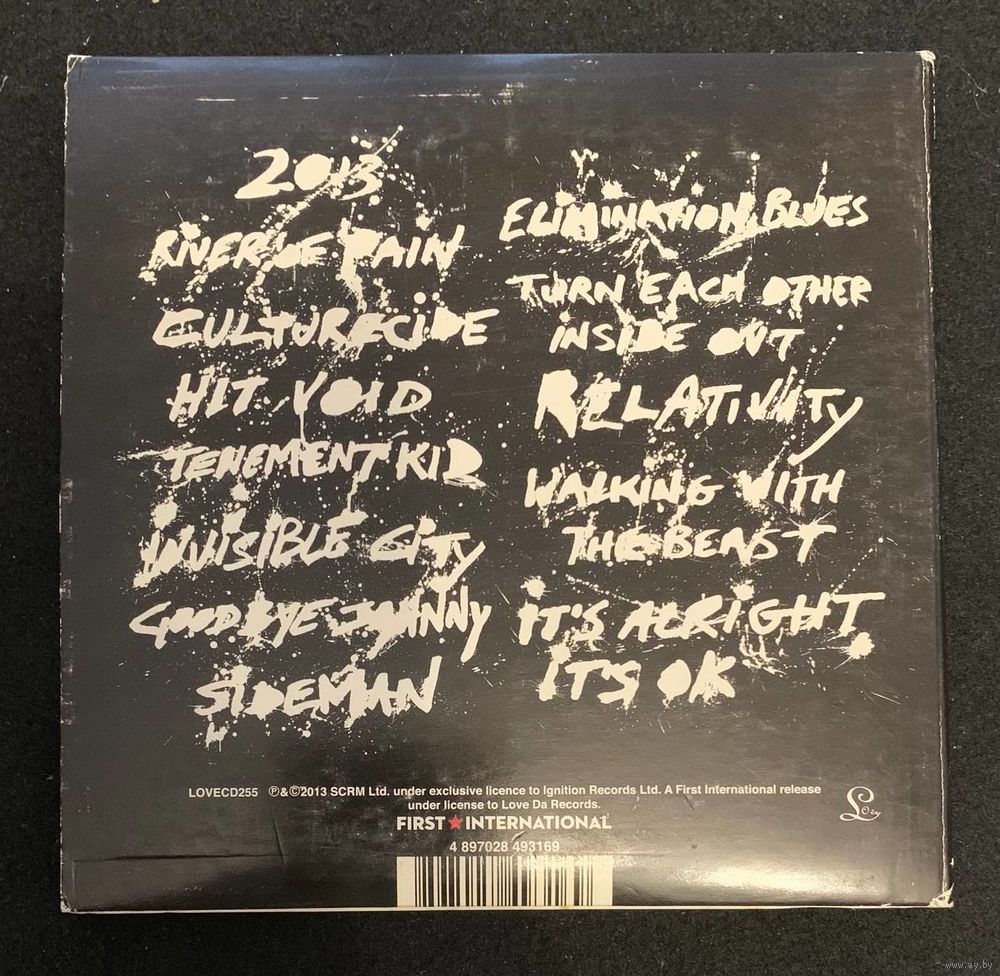 2013
RIVER OF PAIN
CULTURECIDE
HIT VOID
TENEMENT KID
INVISIBLE CITY
GOODBYE JOHNNY
SIDEMAN
ELIMINATION BLUES
TURN EACH OTHER
INSIDE OUT
RELATIVITY
WALKING WITH
THE BEAST
IT'S ALRIGHT
IT'S OK
LOVECD255 ℗&©2013 SCRM Ltd. under exclusive licence to Ignition Records Ltd. A First International release
under license to Love Da Records.
FIRST★INTERNATIONAL
4 897028 493169
www.ay.by